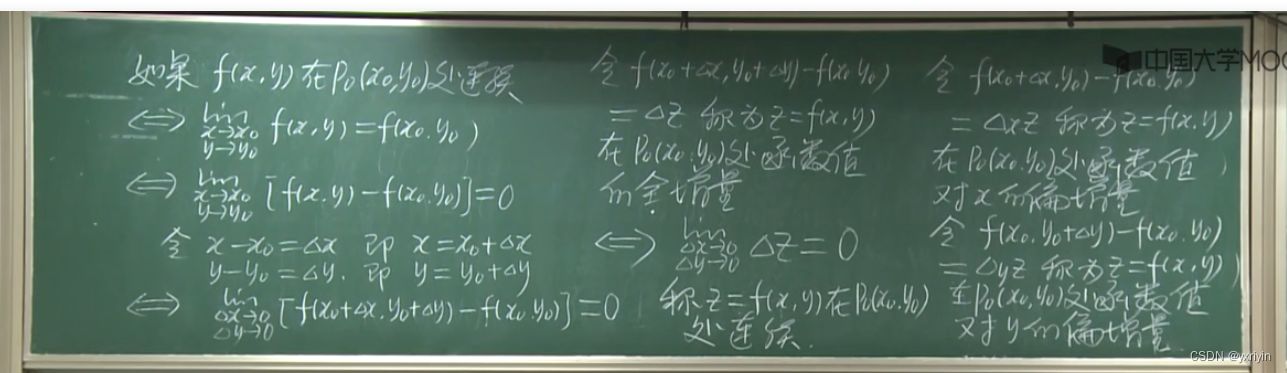 如果 f(x,y) 在 P₀(x₀,y₀) 处连续
⟺ lim x→x₀ y→y₀ f(x,y)=f(x₀,y₀)
⟺ lim x→x₀ y→y₀ [f(x,y)-f(x₀,y₀)]=0
令 x-x₀=Δx 即 x=x₀+Δx
y-y₀=Δy. 即 y=y₀+Δy
⟺ lim Δx→0 Δy→0 [f(x₀+Δx,y₀+Δy)-f(x₀,y₀)]=0
令 f(x₀+Δx,y₀+Δy)-f(x₀,y₀)
=Δz 称为 z=f(x,y)
在P₀(x₀,y₀)处函数值
的全增量
⟺ lim Δx→0 Δy→0 Δz=0
称 z=f(x,y) 在P₀(x₀,y₀)
处连续.
令 f(x₀+Δx,y₀)-f(x₀,y₀)
=Δxz 称为 z=f(x,y)
在P₀(x₀,y₀)处函数值
对x的偏增量
令 f(x₀,y₀+Δy)-f(x₀,y₀)
=Δyz 称为 z=f(x,y)
在P₀(x₀,y₀)处函数值
对y的偏增量
中国大学MOO
CSDN @yxriyin